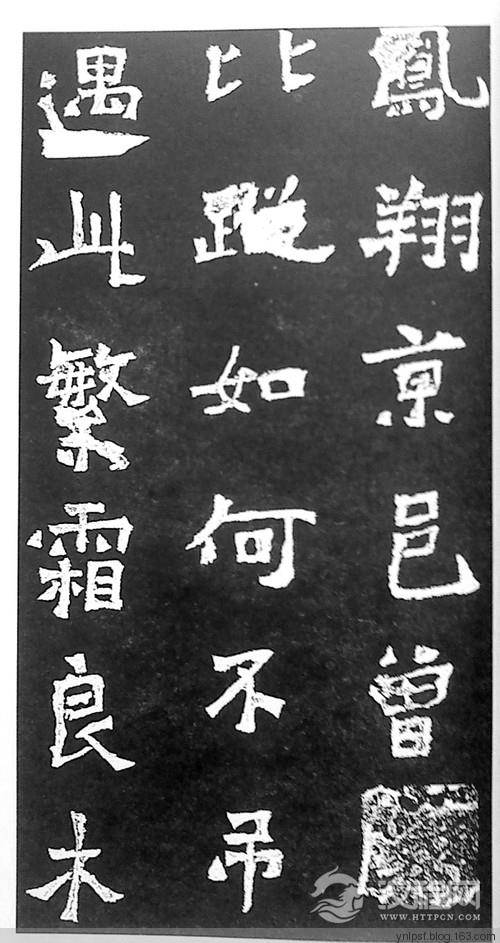 鳳翔京邑曾
比蹤如何不吊
遇此繁霜良木
汉程网
WWW.HTTPCN.COM
ynlpsf.blog.163.com